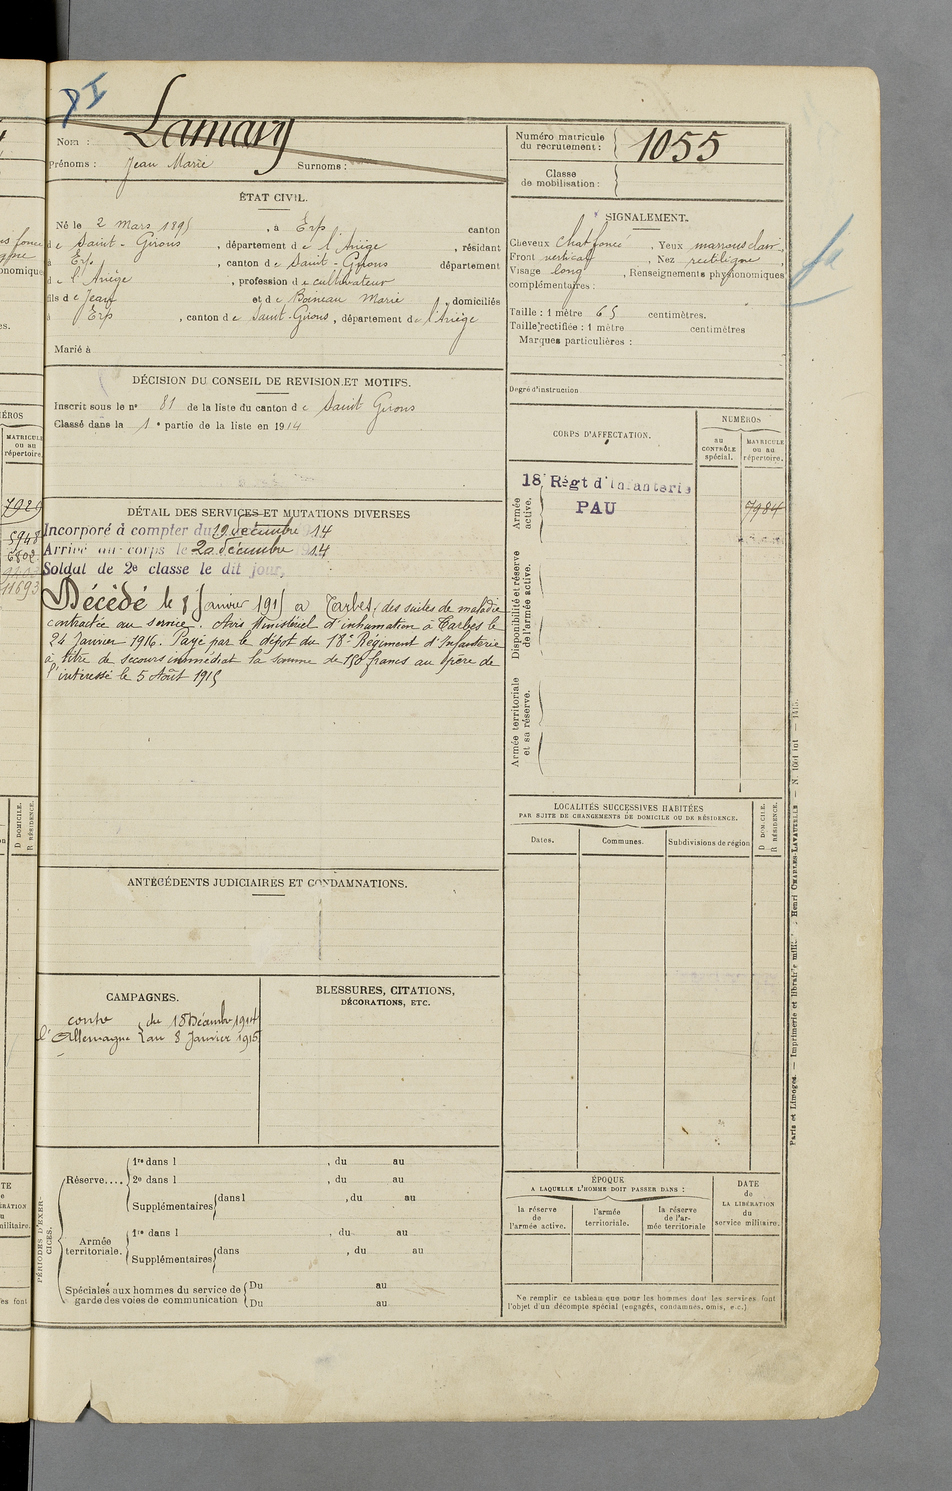 Nom : Lamary
Prénoms : Jean Marie Surnoms :
Numéro matricule du recrutement : 1055
Classe de mobilisation :
ÉTAT CIVIL.
Né le 2 Mars 1895, à Erp, canton
de Saint-Girons, département de l'Ariège, résidant
à Erp, canton de Saint-Girons département
de l'Ariège, profession de cultivateur
fils de Jean et de Boineau Marie, domiciliés
à Erp, canton de Saint-Girons, département de l'Ariège
Marié à
SIGNALEMENT.
Cheveux chat foncé, Yeux marrons clair,
Front vertical, Nez rectiligne,
Visage long, Renseignements physionomiques
complémentaires :
Taille : 1 mètre 65 centimètres.
Taille rectifiée : 1 mètre centimètres
Marques particulières :
Degré d'instruction
DÉCISION DU CONSEIL DE REVISION ET MOTIFS.
Inscrit sous le n° 81 de la liste du canton de Saint Girons
Classé dans la 1e partie de la liste en 1914
CORPS D'AFFECTATION.
NUMÉROS
au CONTRÔLE spécial.
MATRICULE ou au répertoire.
Armée active.
18 Régt d'Infanterie
PAU
7984
Disponibilité et réserve de l'armée active.
Armée territoriale et sa réserve.
DÉTAIL DES SERVICES ET MUTATIONS DIVERSES
Incorporé à compter du 19 décembre 1914
Arrivé au corps le 20 décembre 1914
Soldat de 2e classe le dit jour,
Décédé le 8 Janvier 1915 à Tarbes, des suites de maladie
contractée au service. Avis Ministériel d'inhumation à Tarbes le
24 Janvier 1916. Payé par le dépôt du 18e Régiment d'Infanterie
à titre de secours immédiat la somme de 150 francs au père de
l'intéressé le 5 Août 1915
LOCALITÉS SUCCESSIVES HABITÉES
PAR SUITE DE CHANGEMENTS DE DOMICILE OU DE RÉSIDENCE.
Dates. Communes. Subdivisions de région
D DOMICILE.
R RÉSIDENCE.
ANTÉCÉDENTS JUDICIAIRES ET CONDAMNATIONS.
CAMPAGNES.
contre du 18 Décembre 1914
l'Allemagne au 8 Janvier 1915
BLESSURES, CITATIONS,
DÉCORATIONS, ETC.
PÉRIODES D'EXERCICES.
Réserve....
1re dans l , du au
2e dans l , du au
Supplémentaires dans l , du au
Armée territoriale.
1re dans l , du au
Supplémentaires dans , du au
Spéciales aux hommes du service de
garde des voies de communication
Du au
Du au
ÉPOQUE
A LAQUELLE L'HOMME DOIT PASSER DANS :
la réserve de l'armée active.
l'armée territoriale.
la réserve de l'armée territoriale
DATE de LA LIBÉRATION du service militaire.
Ne remplir ce tableau que pour les hommes dont les services font
l'objet d'un décompte spécial (engagés, condamnés, omis, e.c.)
Paris et Limoges. — Imprimerie et librairie milit. Henri CHARLES-LAVAUZELLE